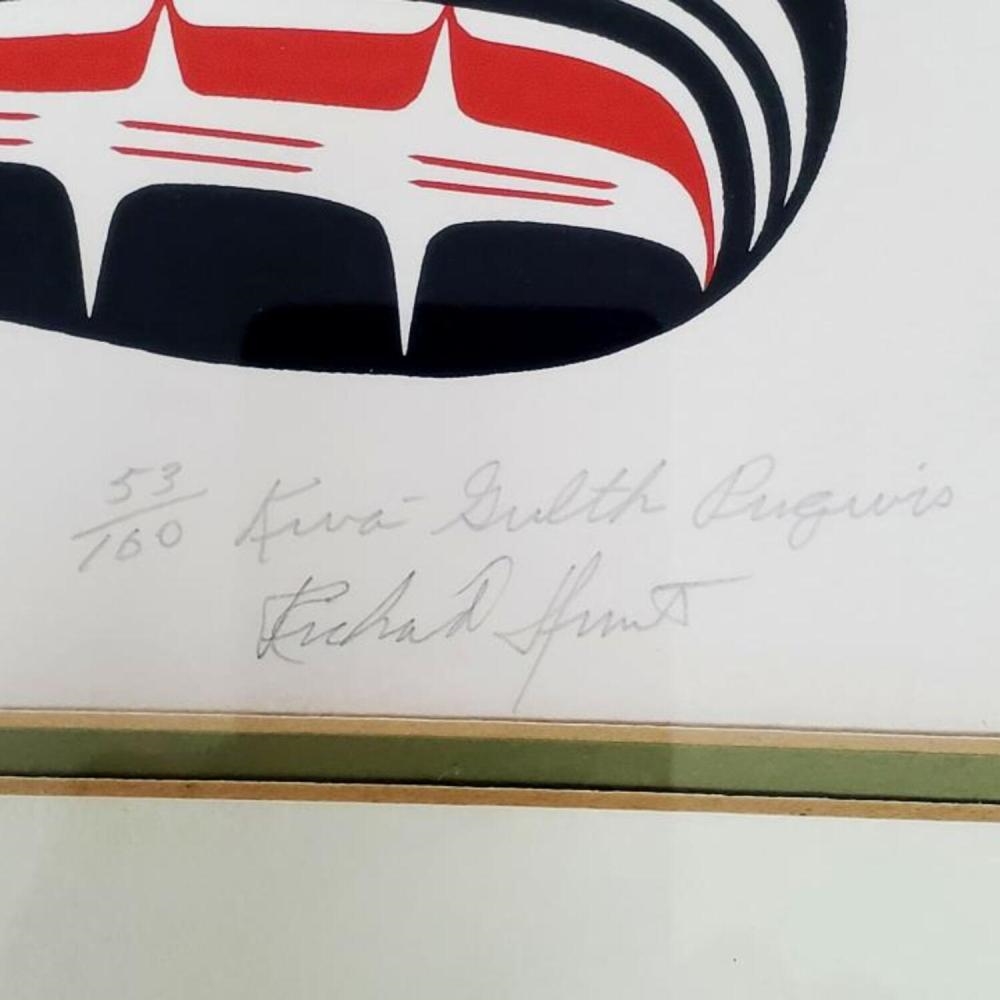 53/160 Kwa-Gulth Pugwis
Richard Hunt